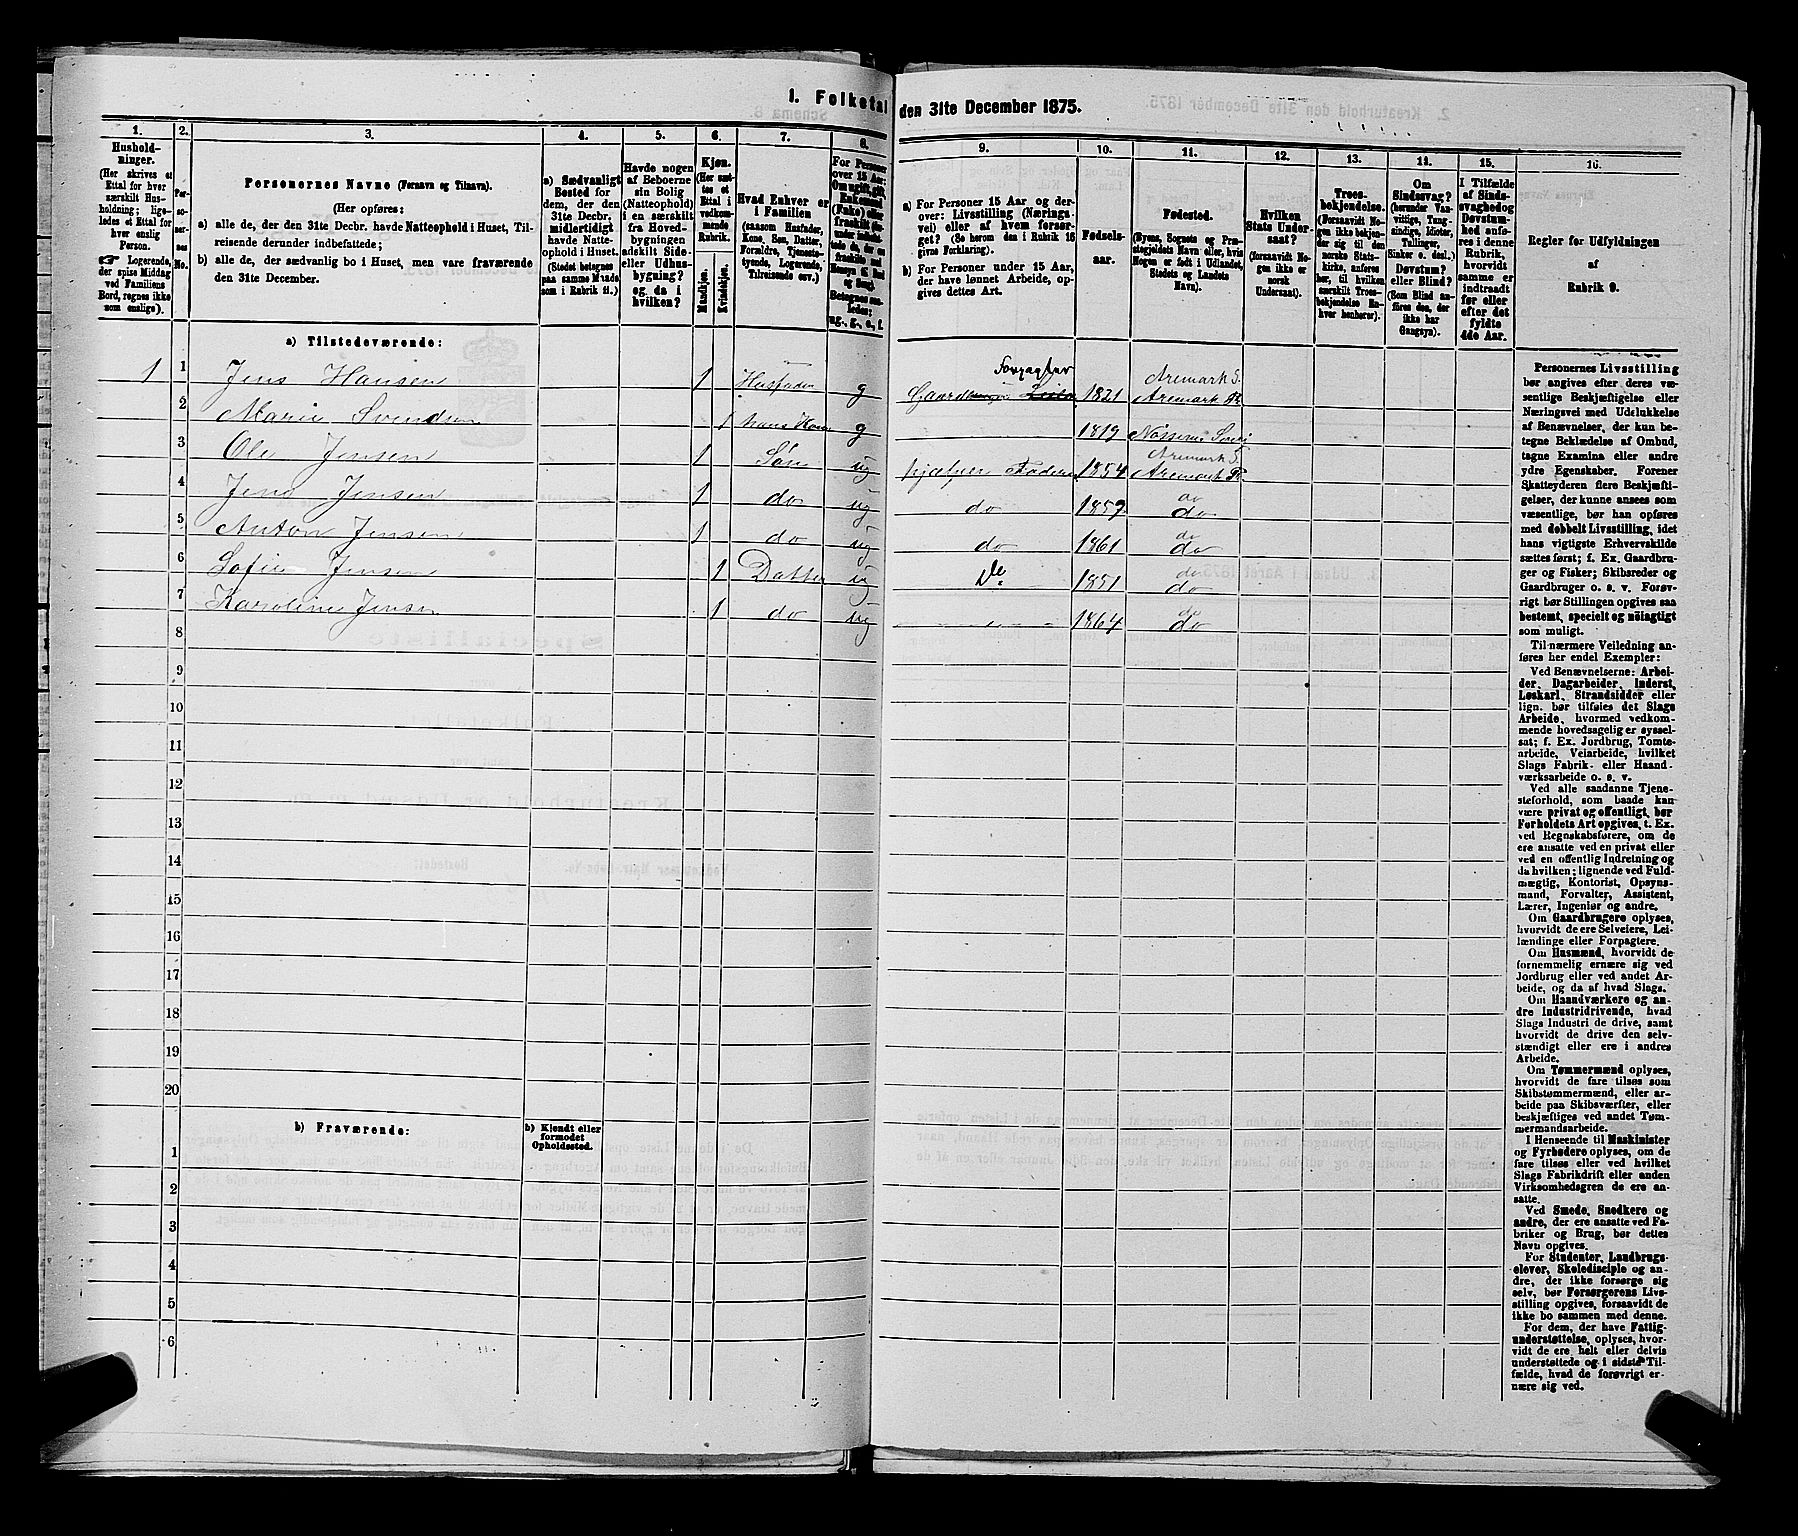 1. Folketal den 31te December 1875.
1.
Hushold-
ninger.
(Her skrives et
Ettal for hver
særskilt Hus-
holdning; lige-
ledes et Ettal for
hver enslig
Person.
☞ Logerende,
der spise Middag
ved Familiens
Bord, regnes ikke
som enslige).
2.
Per-
so-
ner-
nes
No.
3.
Personernes Navne (Fornavn og Tilnavn).
(Her opføres:
a) alle de, der den 31te Decbr. havde Natteophold i Huset, Til-
reisende derunder indbefattede;
b) alle de, der sædvanlig bo i Huset, men vare fraværende
den 31te December.
4.
a) Sædvanligt
Bosted for
dem, der den
31te Decbr.
midlertidigt
havde Natte-
ophold i Huset.
(Stedet betegnes
paa samme Maade
som i Rubrik 11.)
5.
Havde nogen
af Beboerne
sin Bolig
(Natteophold)
i en særskilt
fra Hoved-
bygningen
adskilt Side-
eller Udhus-
bygning?
og da i
hvilken?
6.
Kjøn.
(Her sæt-
tes et
Ettal i
vedkom-
mende
Rubrik.
Mandkjøn.
Kvindekjøn.
7.
Hvad Enhver er
i Familien
(saasom Husfader,
Kone, Søn, Datter,
Forældre, Tjeneste-
tyende, Logerende,
Tilreisende osv.)
8.
For Personer
over 15 Aar:
Om ugift, gift,
Enkemand
(Enke) eller
fraskilt
ug., g., e., f.
9.
a) For Personer 15 Aar og der-
over: Livsstilling (Nærings-
vei) eller af hvem forsør-
get? (Se herom den i Rubrik 16
givne Forklaring).
b) For Personer under 15 Aar,
der have lønnet Arbeide, op-
gives dettes Art.
10.
Fødsels-
aar.
11.
Fødested.
(Byens, Sognets og Præ-
stegjeldets Navn eller, hvis
Nogen er født i Udlandet,
Stedets og Landets
Navn).
12.
Hvilken
Stats Under-
saat?
(forsaavidt No-
gen ikke er
norsk
Undersaat).
13.
Troes-
bekjendelse.
(Forsaavidt No-
gen ikke bekjen-
der sig til den
norske Stats-
kirke, anføres
her, til hvilken
særskilt Troes-
bekjendelse En-
hver henhører).
14.
Om
Sindssvag?
(herunder Van-
vittige, Tung-
sindige, Idioter,
Tullinger,
Sinker o. desl.)
Døvstum?
eller Blind?
(Som Blind an-
føres den, der
ikke har
Gangsyn).
15.
I Tilfælde
af Sinds-
svaghed og
Døvstum-
hed anfø-
res i denne
Rubrik,
hvorvidt
samme er
indtraadt
før eller
efter det
fyldte
4de Aar.
16.
Regler for Udfyldningen
af
Rubrik 9.
a) Tilstedeværende:
1 1 Jens Hansen 1 Husfader g Gaard Forpagter 1821 Aremark S. Aremark Pr.
2 Marie Svendsen 1 hans Kone g 1819
3 Ole Jensen 1 Søn ug hjælper Faderen 1854 Aremark S. Aremark Pr.
4 Jens Jensen 1 do ug do 1859 do do
5 Anton Jensen 1 do ug do 1861 do do
6 Sofie Jensen 1 Datter ug 1851 do do
7 Karoline Jensen 1 do ug 1864 do do
8
9
10
11
12
13
14
15
16
17
18
19
20
b) Fraværende:
b) Kjendt eller
formodet
Opholdssted.
1
2
3
4
5
6
Personernes Livsstilling
bør angives efter deres væ-
sentlige Beskjæftigelse eller
Næringsvei med Udelukkelse
af Benævnelser, der kun be-
tegne Beklædelse af Ombud,
tagne Examina eller andre
ydre Egenskaber. Forener
Skatteyderen flere Beskjæfti-
gelser, der kunne ansees som
væsentlige, bør han opføres
med dobbelt Livsstilling, idet
hans vigtigste Erhvervskilde
sættes først; f. Ex. Gaardbru-
ger og Fisker; Skibsreder og
Gaardbruger o. s. v. Forøv-
rigt bør Stillingen opgives saa
bestemt, specielt og nøiagtigt
som muligt.
Til nærmere Veiledning an-
føres her endel Exempler:
Ved Benævnelserne: Arbei-
der, Dagarbeider, Inderst,
Løskarl, Strandsidder eller
lign. bør tilføies det Slags
Arbeide, hvormed vedkom-
mende hovedsagelig er syssel-
sat; f. Ex. Jordbrug, Tomte-
arbeide, Veiarbeide, hvilket
Slags Fabrik- eller Haand-
værksarbeide o. s. v.
Ved alle saadanne Tjene-
steforhold, som baade kan
være privat og offentligt, bør
Forholdets Art opgives, t. Ex.
ved Regnskabsførere, om de
ere ansatte ved en privat eller
ved en offentlig Indretning og
da hvilken; lignende ved Fuld-
mægtig, Kontorist, Opsyns-
mand, Forvalter, Assistent,
Lærer, Ingeniør og andre.
Om Gaardbrugere oplyses,
hvorvidt de ere Selveiere, Lei-
lændinge eller Forpagtere.
Om Husmænd, hvorvidt de
fornemmelig ernære sig ved
Jordbrug eller ved andet Ar-
beide, og da af hvad Slags.
Om Haandværkere og an-
dre Industridrivende, hvad
Slags Industri de drive, samt
hvorvidt de drive den selv-
stændigt eller ere i andres
Arbeide.
Om Tømmermænd oplyses,
hvorvidt de fare tilsøs som
Skibstømmermænd, eller ar-
beide paa Skibsværfter, eller
beskjæftiges ved andet Tøm-
mermandsarbeide.
I Henseende til Maskinister
og Fyrbødere oplyses, om de
fare tilsøs eller ved hvilket
Slags Fabrikdrift eller anden
Virksomhedsgren de ere an-
satte.
Ved Smede, Snedkere og
andre, der ere ansatte ved Fa-
briker og Brug, bør dettes
Navn opgives.
For Studenter, Landbrugs-
elever, Skoledisciple og an-
dre, der ikke forsørge sig
selv, bør Forsørgerens Livs-
stilling opgives, forsaavidt de
ikke bo sammen med denne.
For dem, der have Fattig-
understøttelse, oplyses, hvor-
vidt de ere helt eller delvis
understøttede og i sidste Til-
fælde, hvad de forøvrigt er-
nære sig ved.